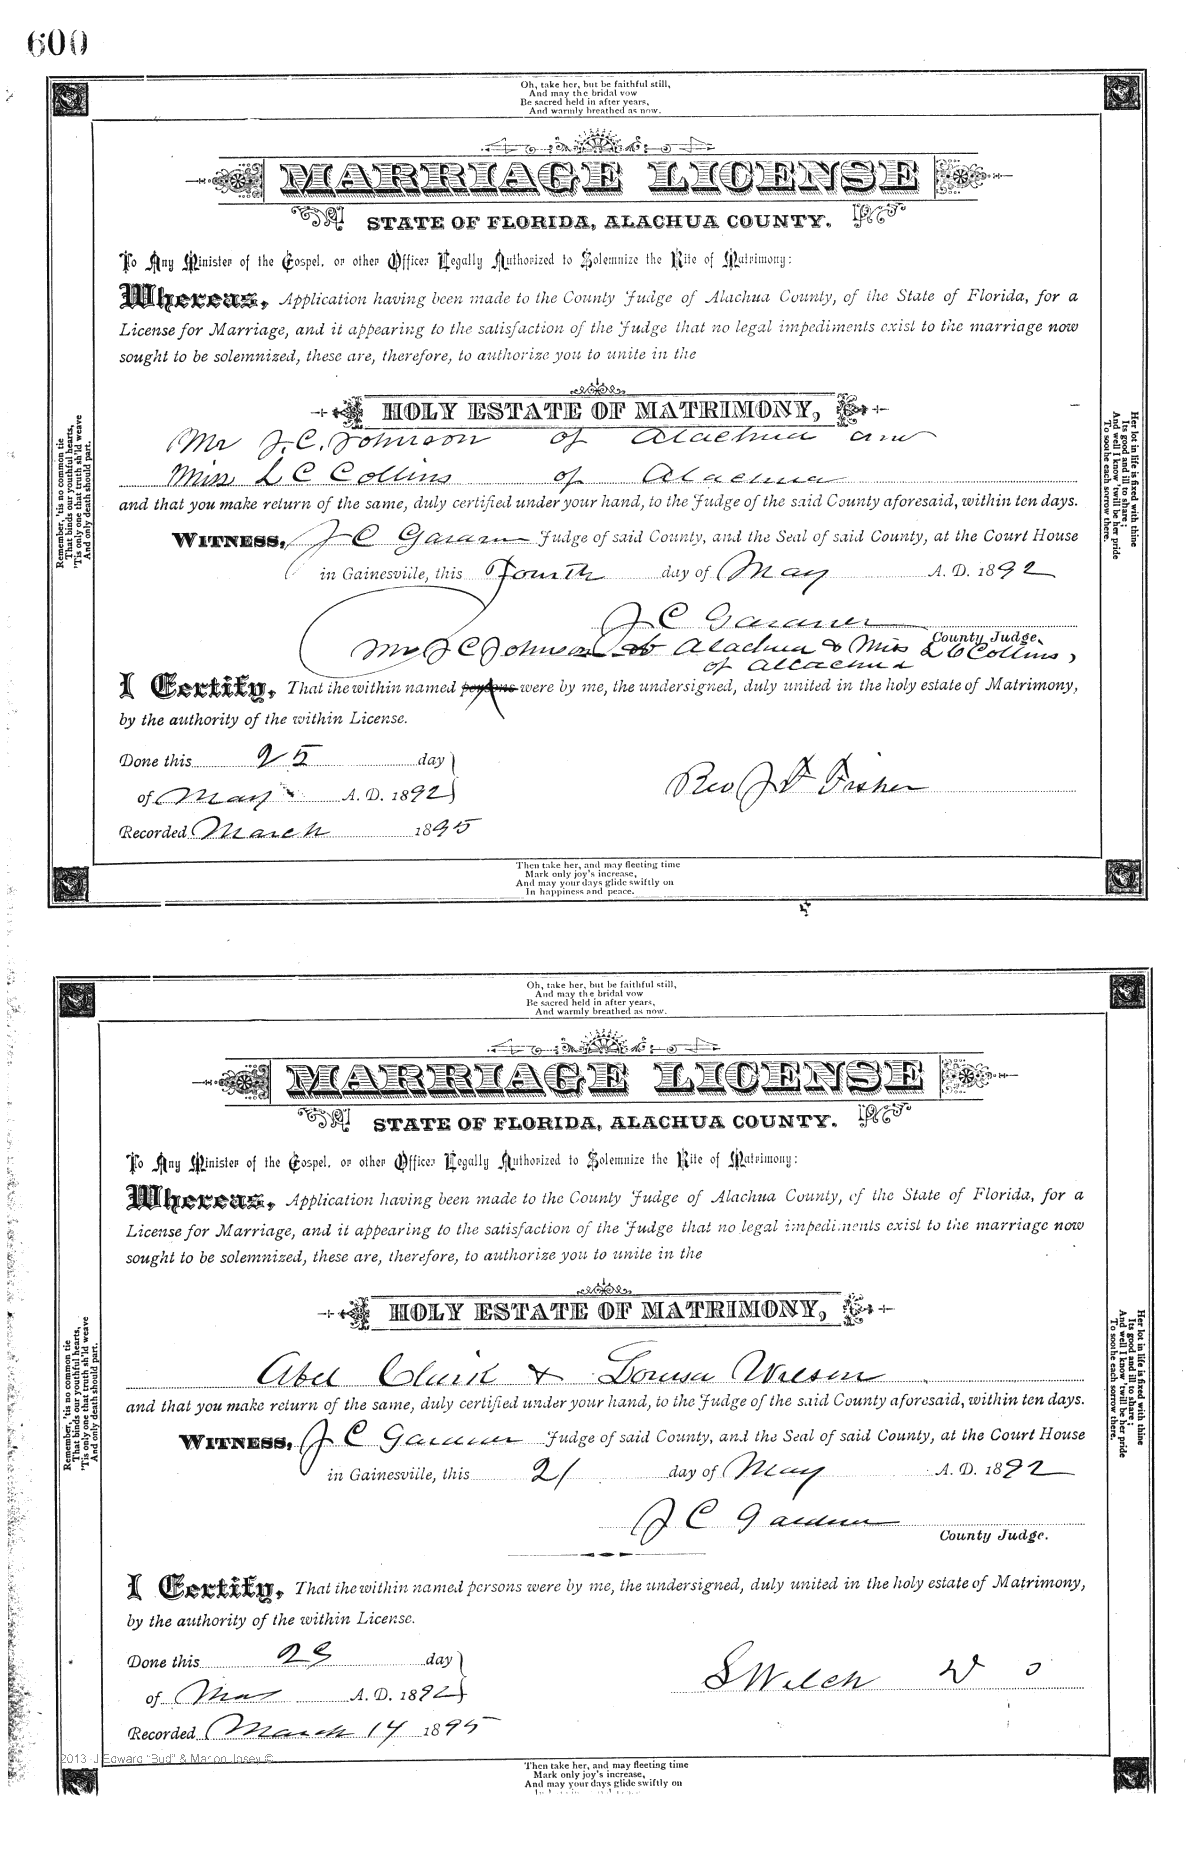 600
Oh, take her, but be faithful still,
And may the bridal vow
Be sacred held in after years,
And warmly breathed as now.
MARRIAGE LICENSE
STATE OF FLORIDA, ALACHUA COUNTY.
To Any Minister of the Gospel, or other Officer Legally Authorized to Solemnize the Rite of Matrimony:
Whereas, Application having been made to the County Judge of Alachua County, of the State of Florida, for a
License for Marriage, and it appearing to the satisfaction of the Judge that no legal impediments exist to the marriage now
sought to be solemnized, these are, therefore, to authorize you to unite in the
HOLY ESTATE OF MATRIMONY,
Mr J. C. Johnson of Alachua and
Miss L C Collins of Alachua
and that you make return of the same, duly certified under your hand, to the Judge of the said County aforesaid, within ten days.
WITNESS, J C Gardner Judge of said County, and the Seal of said County, at the Court House
in Gainesville, this Fourth day of May A. D. 1892
J C Gardner
County Judge.
Mr J C Johnson of Alachua & Miss L C Collins,
of Alachua
I Certify, That the within named persons were by me, the undersigned, duly united in the holy estate of Matrimony,
by the authority of the within License.
Done this 25 day
of May A. D. 1892
Rev J F Fisher
Recorded March 1895
Then take her, and may fleeting time
Mark only joy's increase,
And may your days glide swiftly on
In happiness and peace.
Remember, 'tis no common tie
That binds our youthful hearts,
'Tis only one that truth sh'ld weave
And only death should part.
Her lot in life is fixed with thine
Its good and ill to share;
And well I know 'twill be her pride
To soothe each sorrow there.
Oh, take her, but be faithful still,
And may the bridal vow
Be sacred held in after years,
And warmly breathed as now.
MARRIAGE LICENSE
STATE OF FLORIDA, ALACHUA COUNTY.
To Any Minister of the Gospel, or other Officer Legally Authorized to Solemnize the Rite of Matrimony:
Whereas, Application having been made to the County Judge of Alachua County, of the State of Florida, for a
License for Marriage, and it appearing to the satisfaction of the Judge that no legal impediments exist to the marriage now
sought to be solemnized, these are, therefore, to authorize you to unite in the
HOLY ESTATE OF MATRIMONY,
Abel Clark & Louisa Wilson
and that you make return of the same, duly certified under your hand, to the Judge of the said County aforesaid, within ten days.
WITNESS, J C Gardner Judge of said County, and the Seal of said County, at the Court House
in Gainesville, this 21 day of May A. D. 1892
J C Gardner
County Judge.
I Certify, That the within named persons were by me, the undersigned, duly united in the holy estate of Matrimony,
by the authority of the within License.
Done this day
of May A. D. 1892
S Welch
Recorded March 14 1895
2013 J Edward "Bud" & Marion Josey ©
Then take her, and may fleeting time
Mark only joy's increase,
And may your days glide swiftly on
Remember, 'tis no common tie
That binds our youthful hearts,
'Tis only one that truth sh'ld weave
And only death should part.
Her lot in life is fixed with thine
Its good and ill to share;
And well I know 'twill be her pride
To soothe each sorrow there.